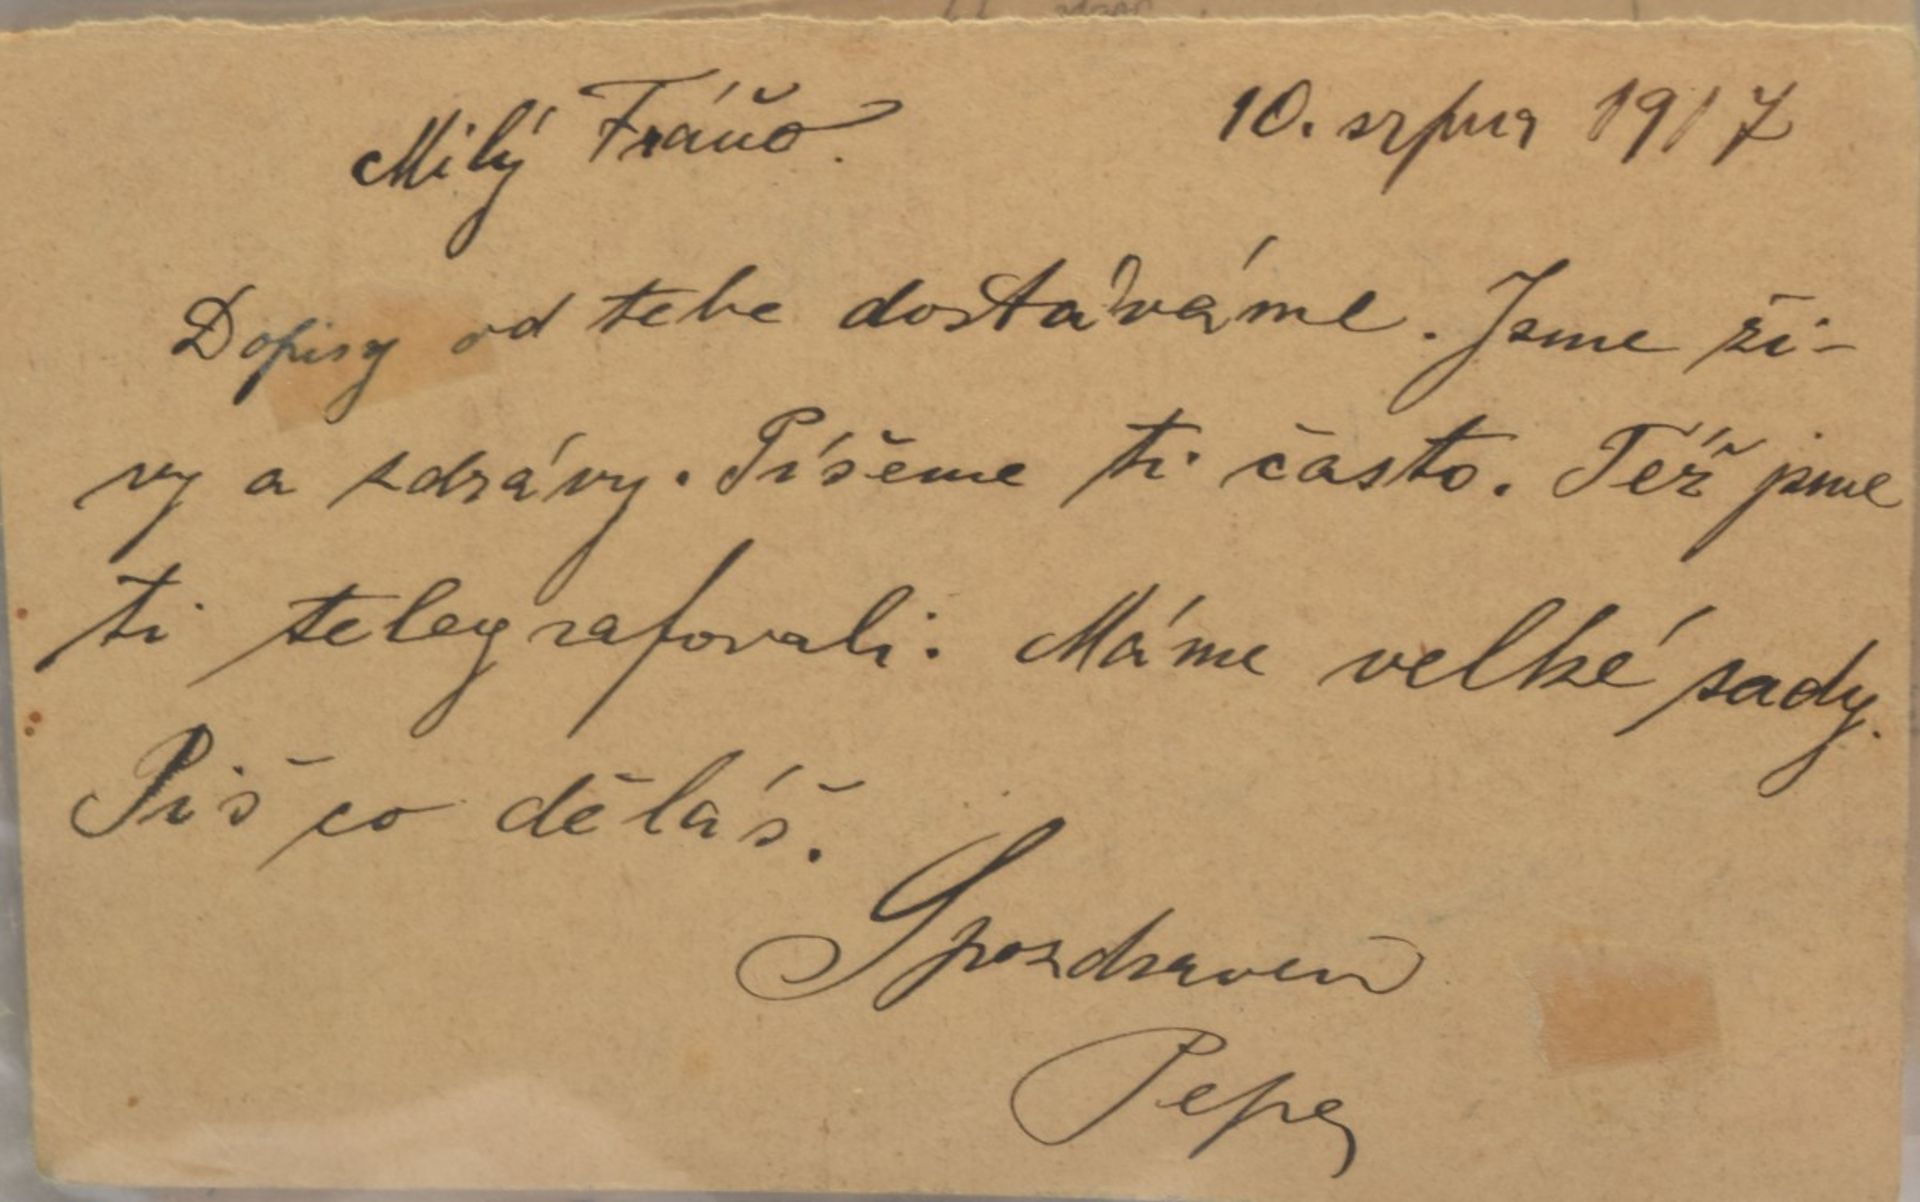 Milý Fráňo. 10. srpna 1917
Dopisy od tebe dostáváme. Jsme ži-
vy a zdrávy. Píšeme ti často. Též jsme
ti telegrafovali. Máme velké sady.
Piš co děláš.
S pozdravem
Pepa